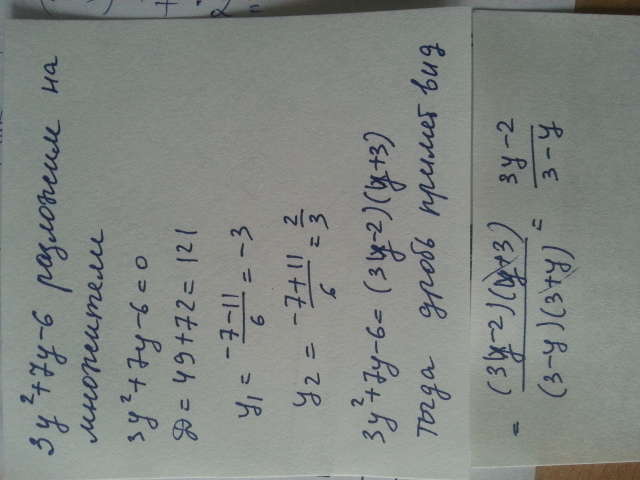 3y²+7y-6 разложим на
множители
3y²+7y-6=0
D=49+72=121
y₁ = (-7-11)/6 = -3
y₂ = (-7+11)/6 = 2/3
3y²+7y-6=(3y-2)(y+3)
тогда дробь примет вид
= (3y-2)(y+3)/(3-y)(3+y) = (3y-2)/(3-y)